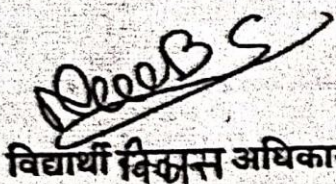 विद्यार्थी विकास अधिका